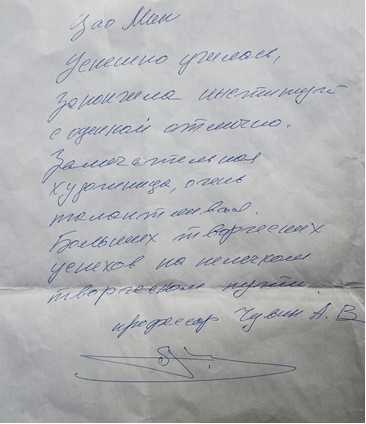 Зао Мин
Успешно училась,
Закончила институт
с оценкой отлично.
Замечательная
художница, очень
талантливая.
Больших творческих
успехов на нелегком
творческом пути.
профессор Чувин А. В